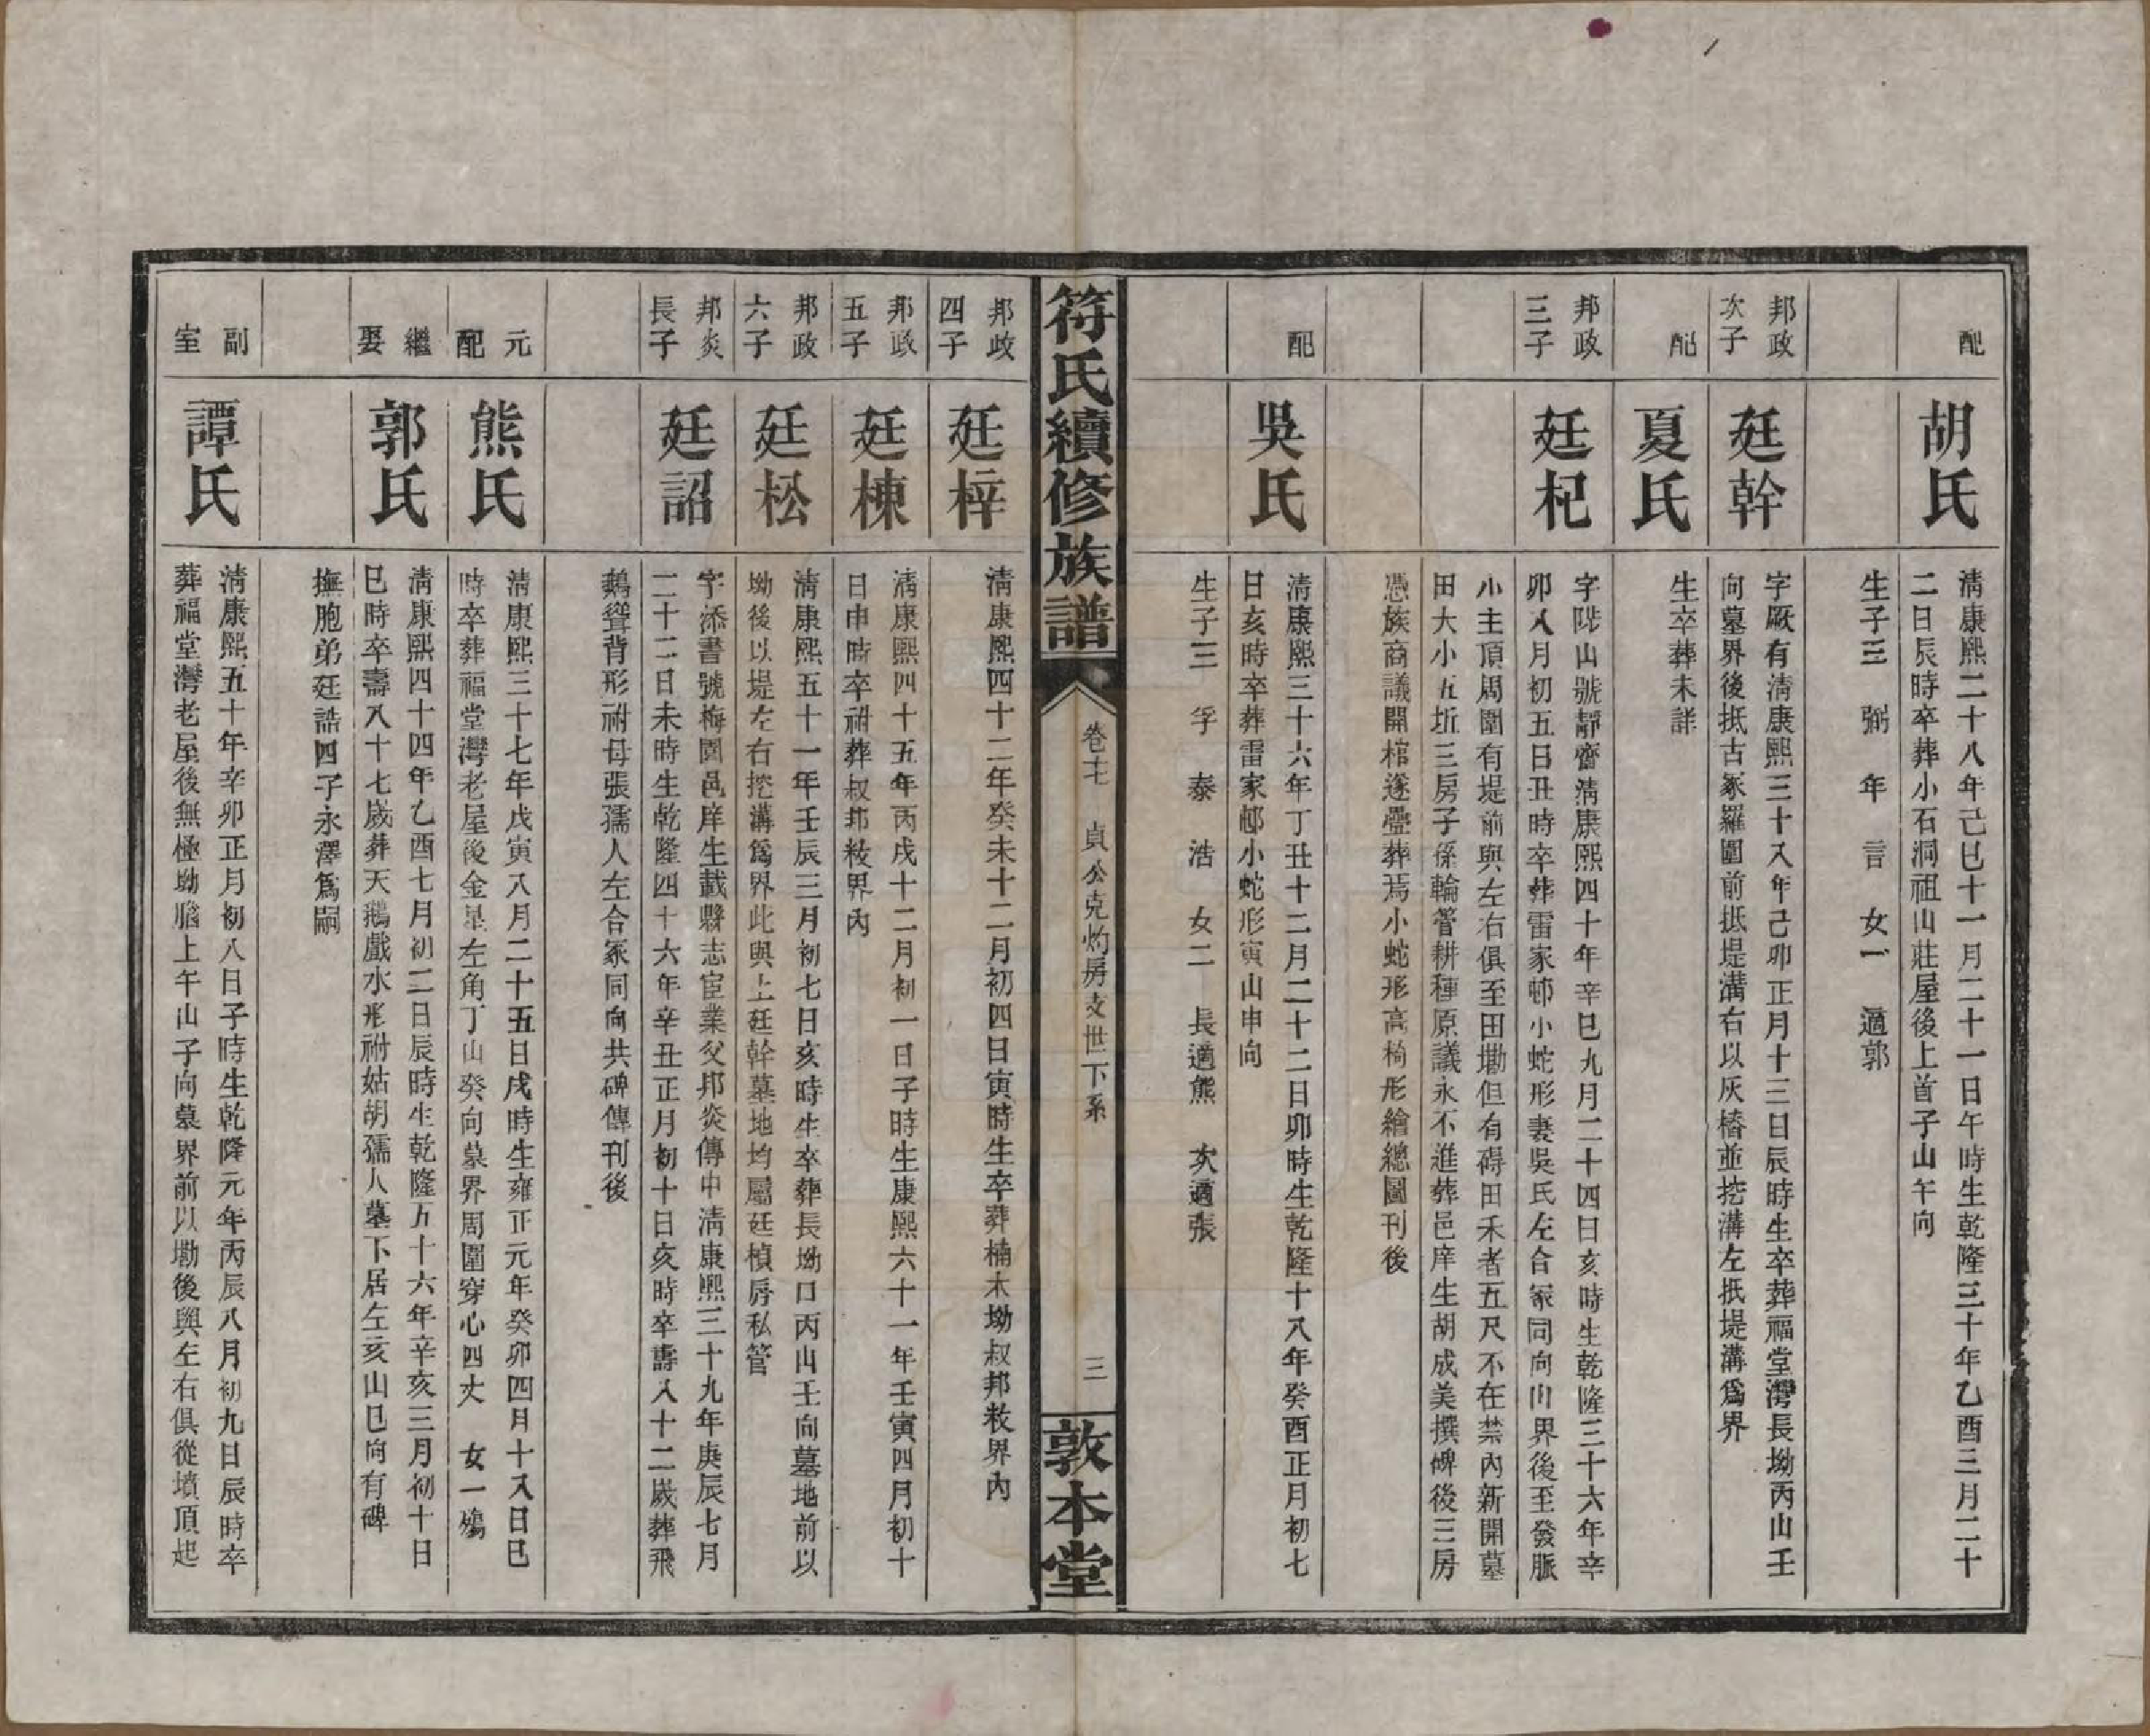 配
胡氏
清康熙二十八年己巳十一月二十一日午時生乾隆三十年乙酉三月二十
二日辰時卒葬小石洞祖山莊屋後上首子山午向
生子三 弼 年 言 女一 適郭
邦政
次子
廷幹
字厥有清康熙三十八年己卯正月十三日辰時生卒葬福堂灣長坳丙山壬
向墓界後抵古冢羅圍前抵堤溝右以灰樁並挖溝左抵堤溝爲界
配
夏氏
生卒葬未詳
邦政
三子
廷杞
字陛山號靜齋清康熙四十年辛巳九月二十四日亥時生乾隆三十六年辛
卯八月初五日丑時卒葬雷家邨小蛇形妻吳氏左合冢同向山界後至發脈
小主頂周圍有堤前與左右俱至田墈但有碍田禾者五尺不在禁內新開墓
田大小五坵三房子孫輪管耕種原議永不進葬邑庠生胡成美撰碑後三房
憑族商議開棺遂疊葬焉小蛇形高椅形繪總圖刊後
配
吳氏
清康熙三十六年丁丑十二月二十二日卯時生乾隆十八年癸酉正月初七
日亥時卒葬雷家邨小蛇形寅山申向
生子三 孚 泰 浩 女二 長適熊 次適張
符氏續修族譜
卷十七 貞公克灼房支世下系
三
敦本堂
邦政
四子
廷梓
清康熙四十二年癸未十二月初四日寅時生卒葬楠木坳叔邦敉界內
邦政
五子
廷棟
清康熙四十五年丙戌十二月初一日子時生康熙六十一年壬寅四月初十
日申時卒祔葬叔邦敉界內
邦政
六子
廷松
清康熙五十一年壬辰三月初七日亥時生卒葬長坳口丙山壬向墓地前以
坳後以堤左右挖溝爲界此與上廷幹墓地均屬廷楨房私管
邦炎
長子
廷詔
字添書號梅園邑庠生載縣志宦業父邦炎傳中清康熙三十九年庚辰七月
二十二日未時生乾隆四十六年辛丑正月初十日亥時卒壽八十二歲葬飛
鵝聳背形祔母張孺人左合冢同向共碑傳刊後
元
配
熊氏
清康熙三十七年戊寅八月二十五日戌時生雍正元年癸卯四月十八日巳
時卒葬福堂灣老屋後金星左角丁山癸向墓界周圍穿心四丈 女一殤
繼
娶
郭氏
清康熙四十四年乙酉七月初二日辰時生乾隆五十六年辛亥三月初十日
巳時卒壽八十七歲葬天鵝戲水形祔姑胡孺人墓下居左亥山巳向有碑
撫胞弟廷誥四子永澤爲嗣
副
室
譚氏
清康熙五十年辛卯正月初八日子時生乾隆元年丙辰八月初九日辰時卒
葬福堂灣老屋後無極坳腦上午山子向墓界前以墈後與左右俱從墳頂起